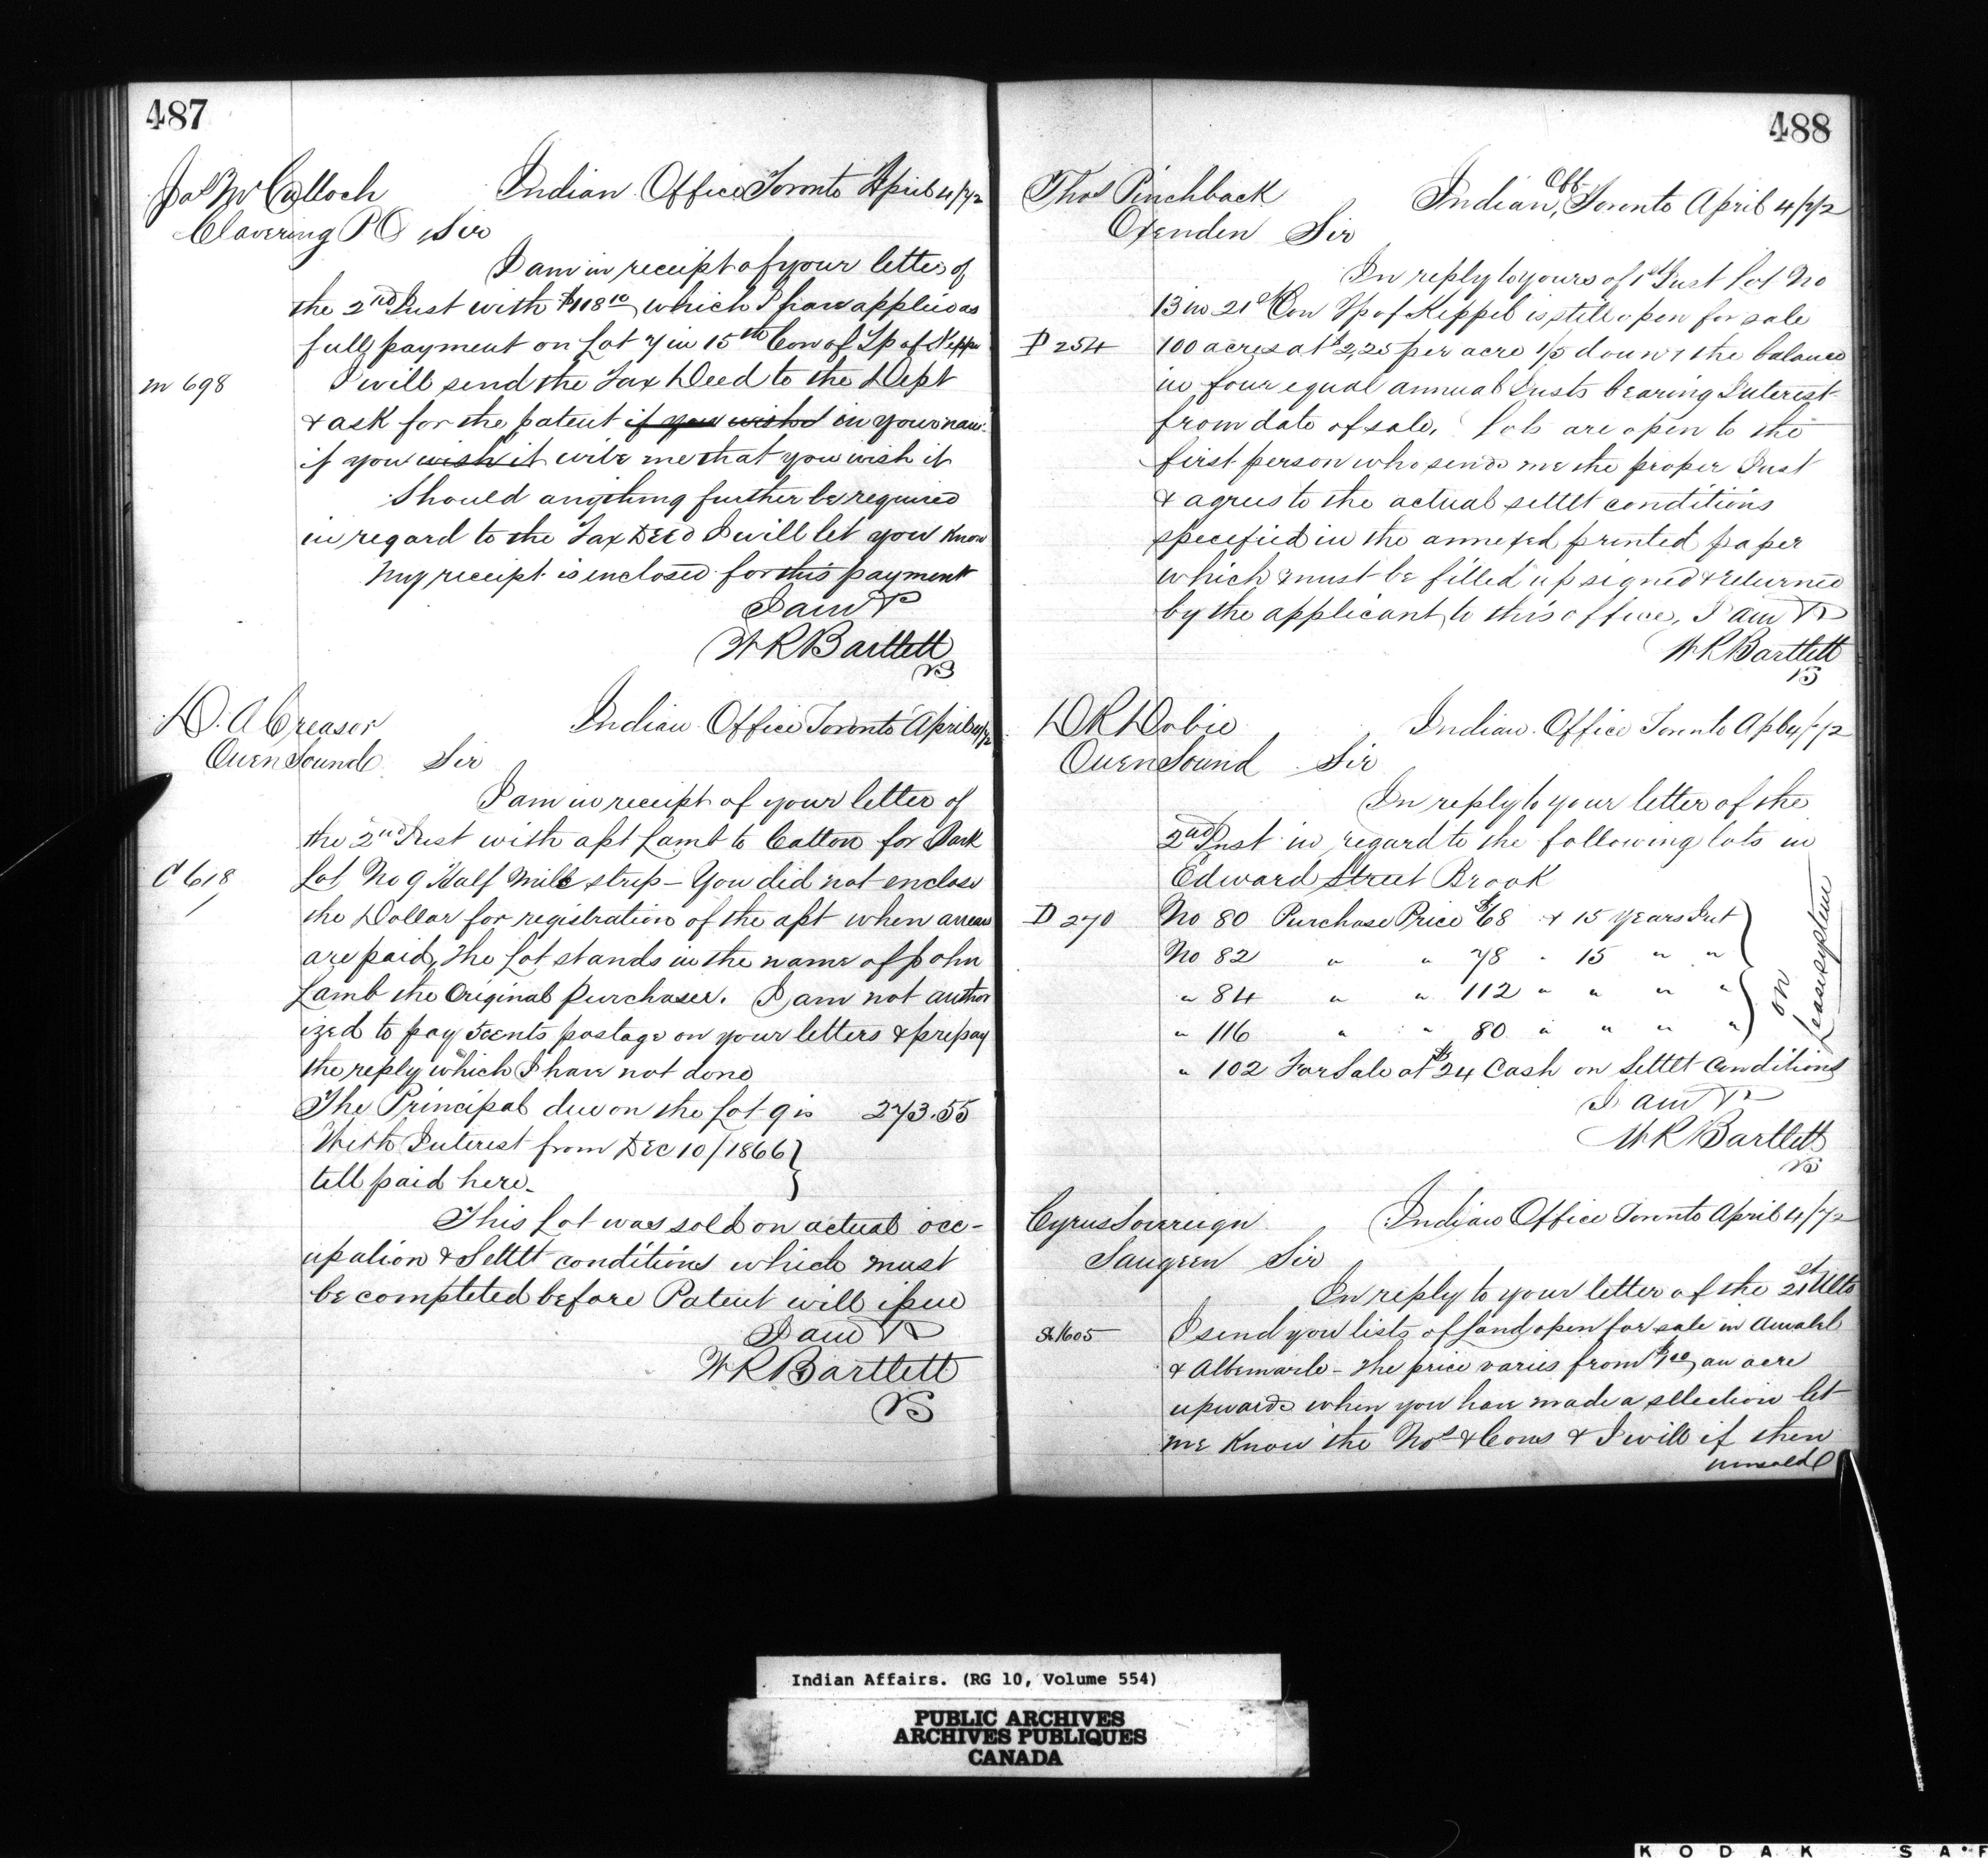 487
Jas McColloch Indian Office Toronto April 4/72
Clavering P O Sir
I am in receipt of your letter of
the 2nd Inst with $118 10 which I have applied as
full payment on Lot 7 in 15th Con of Tp of Keppel
m 698 I will send the Tax Deed to the Dept
& ask for the patent if you wished in your name
if you wish it write me that you wish it
Should anything further be required
in regard to the Tax DEED I will let you Know
My receipt is enclosed for this payment
I am &c
W R Bartlett
D. A Creasor Indian Office Toronto April 4/72
Owen Sound Sir
I am in receipt of your letter of
the 2nd Inst with asst Lamb to Catton for Park
C 618 Lot No 9 Half Mile strip – You did not enclose
the Dollar for registration of the asst when arrears
are paid, The Lot stands in the name of John
Lamb the Original Purchaser. I am not author
ized to pay 5 cents postage on your letters & prepay
the reply which I have not done
The Principal due on the Lot 9 is 273.55
With Interest from DEC 10/1866 }
till paid here.
This Lot was sold on actual occ-
upation & Settlt conditions which must
be completed before Patent will issue
I am &c
W R Bartlett
488
Thos Pinchback Indian Off Toronto April 4/72
Oxenden Sir
In reply to yours of 1st Inst Lot No
13 in 21st Con Tp of Keppel is still open for sale
P 254 100 acres at $2,25 per acre 1/5 down & the balance
in four equal annual Insts bearing Interest
from date of sale. Lots are open to the
first person who sends me the proper Inst
& agrees to the actual settlt conditions
specified in the annexed printed paper
which must be filled up signed & returned
by the applicant to this office, I am &c
W R Bartlett
D R Dobie Indian Office Toronto Ap 4/72
Owen Sound Sir
In reply to your letter of the
2nd Inst in regard to the following lots in
Edward Street Brook
D 270 No 80 Purchase Price $68 & 15 years Int
No 82 " " 78 " 15 " "
" 84 " " 112 " " " "
" 116 " " 80 " " " "
on
Lease system
" 102 For Sale at $24 Cash on Settlt Conditions
I am &c
W R Bartlett
Cyrus Sovereign Indian Office Toronto April 4/72
Saugeen Sir
In reply to your letter of the 21st Ulto
S 1605 I send you lists of Land open for sale in Amabel
& Albemarle – the price varies from $1 00 an acre
upwards when you have made a selection let
me Know the Nos & Cons & I will if then
unsold
Indian Affairs. (RG 10, Volume 554)
PUBLIC ARCHIVES
ARCHIVES PUBLIQUES
CANADA
KODAK SAF